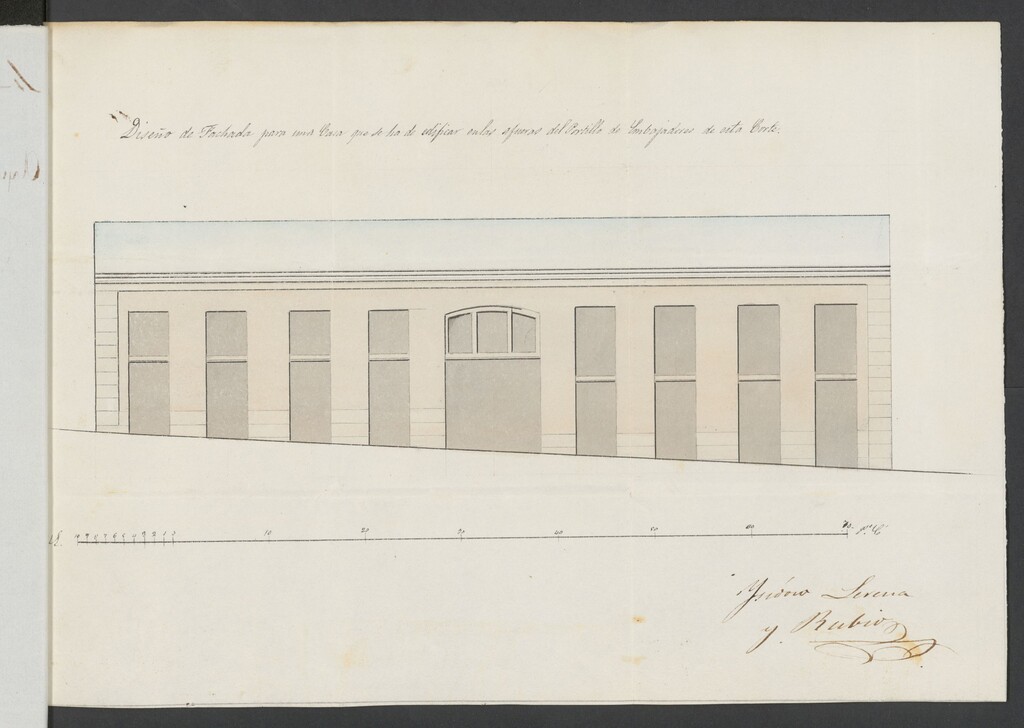 Diseño de Fachada para una Casa que se ha de edificar en las afueras del Portillo de Embajadores de esta Corte.
10 20 30 40 50 60 70
Ysidoro Lerena
y Rubio